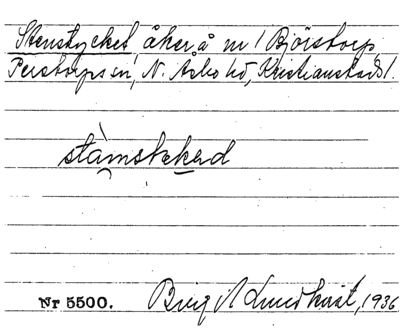 Stenstycket åker å nr 1 Björstorp,
Perstorps sn, N. Åsbo hd, Kristianstads l.
stàmstekad
Nr 5500. Birgit Lundkvist, 1936